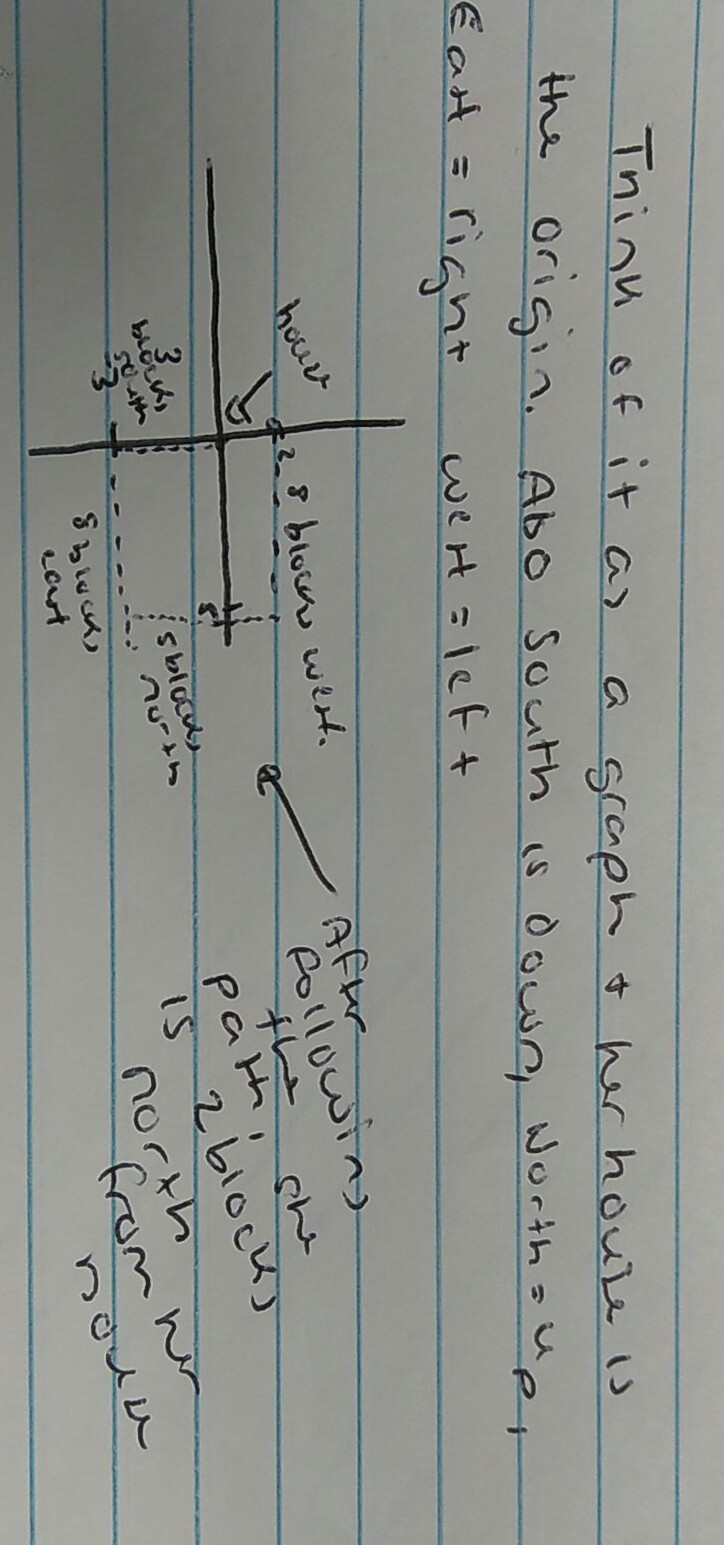 Think of it as a graph + her house is
the origin. Also South is down, North = up,
East = right west = left
house
2
8 blocks west.
3 blocks south
-3
8
5 blocks north
8 blocks east
After following the
path, she
is 2 blocks
north from her
house